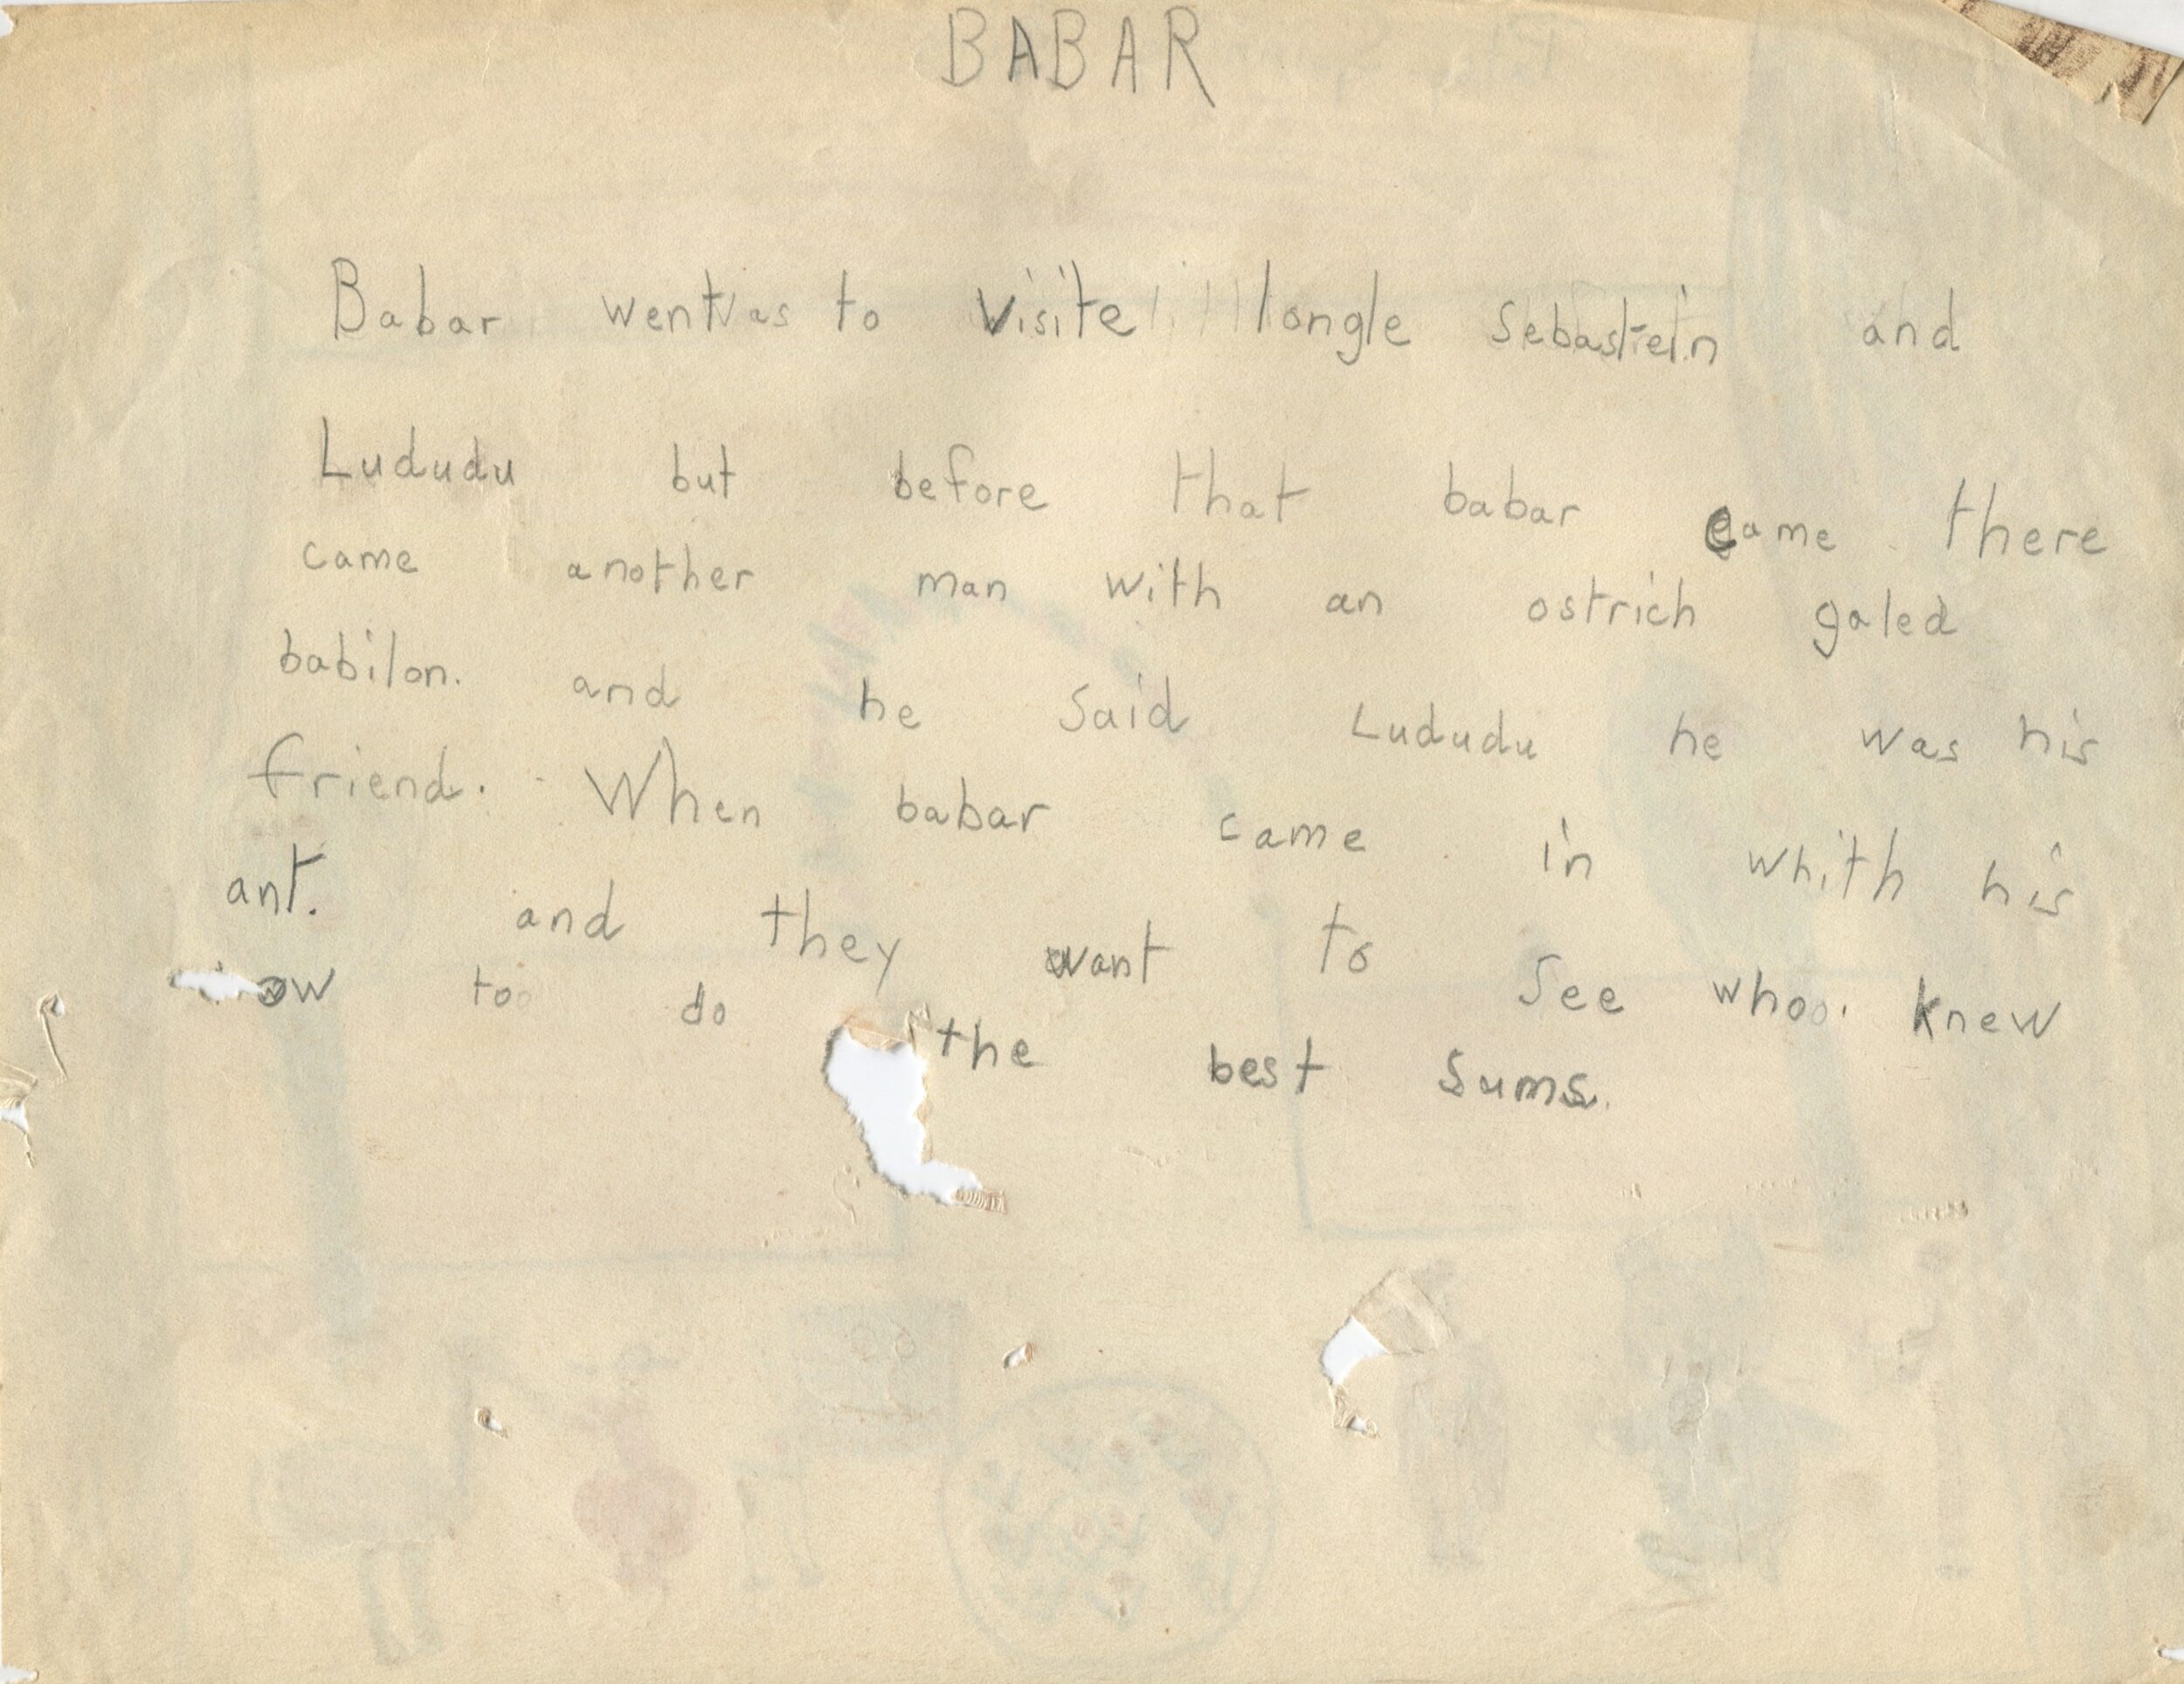 BABAR
Babar went to visite longle Sebastein and
Lududu but before that babar came there
came another man with an ostrich galed
babilon. and he said Lududu he was his
friend. When babar came in whith his
ant. and they want to see who knew
to do the best sums.